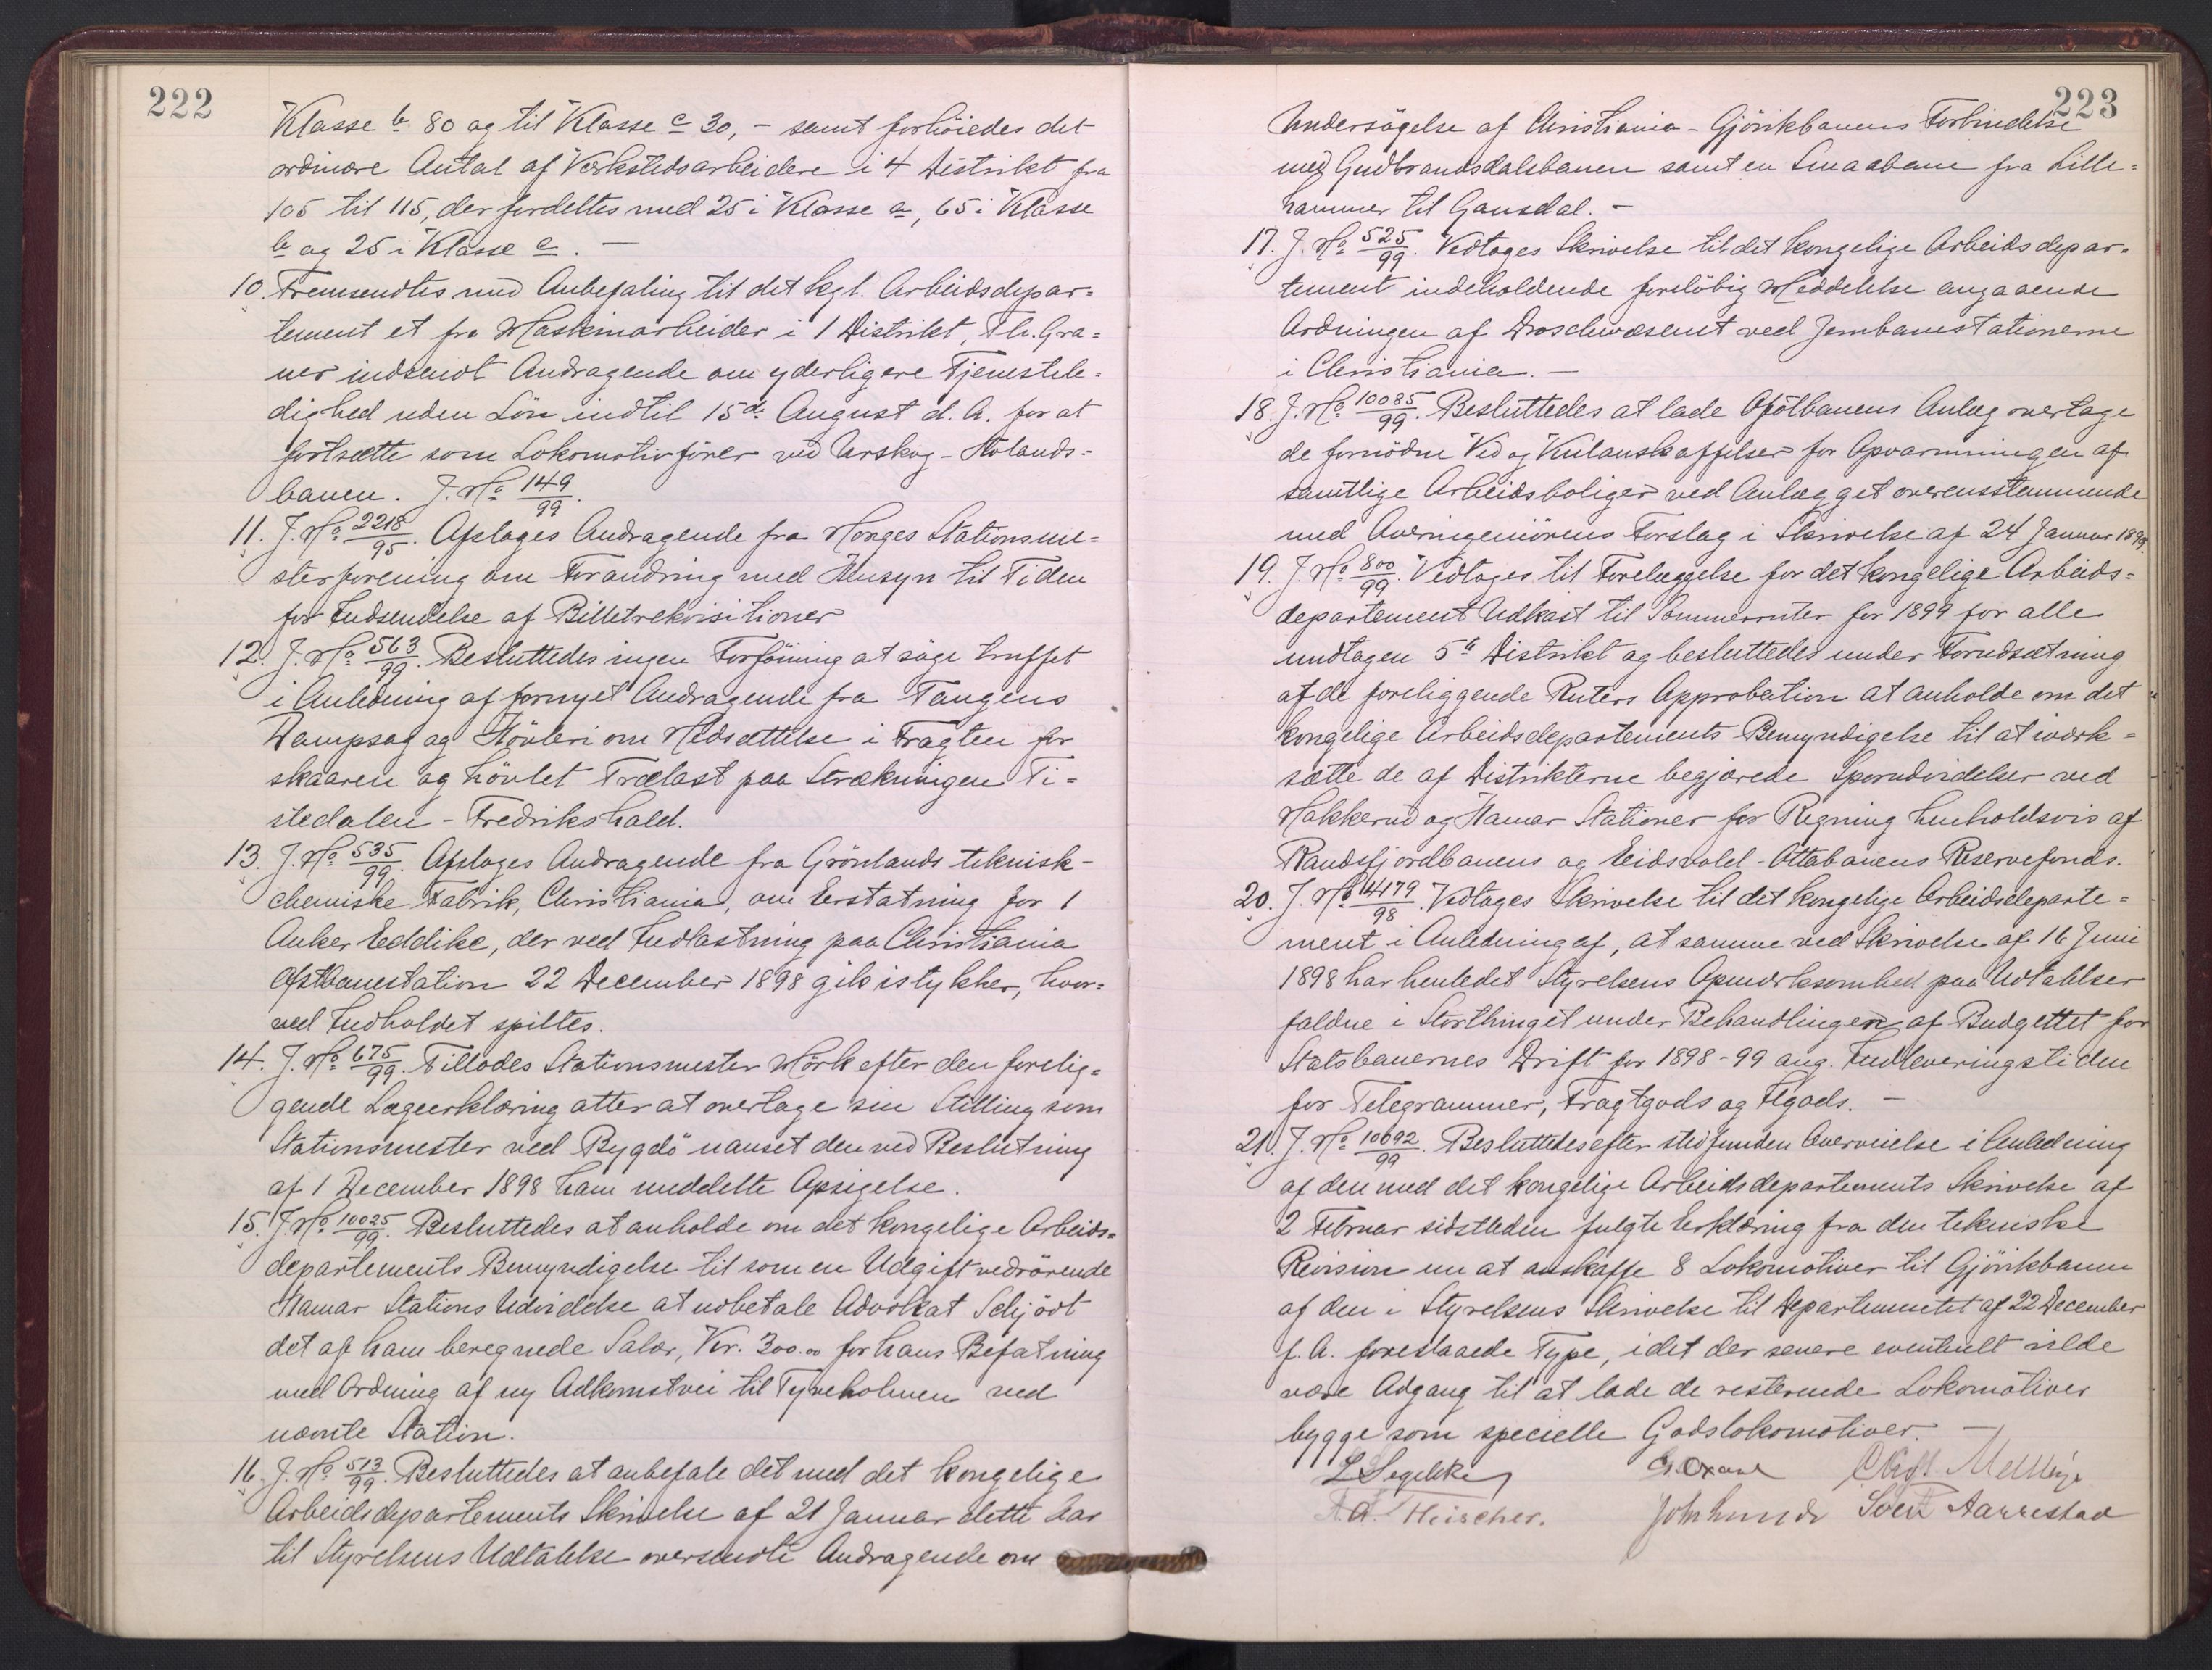 222
Klasse b 80 og til Klasse c 30, - samt forhöiedes det
ordinære Antal af Værkstedsarbeidere i 4 Distrikt fra
105 til 115, der fordeltes med 25 i Klasse a, 65 i Klasse
b og 25 i Klasse c. —
10. Fremsendtes med Anbefaling til det kgl. Arbeidsdepar=
tement et fra Maskinarbeider i 1 Distrikt, Th. Gra=
ner indsendt Andragende om yderligere Tjenestele=
dighed uden Lön indtil 15de August d. A. for at
fortsætte som Lokomotivförer ved Urskog-Hölands=
banen. J. No 149/99.
11. J. No 2218/95. Afslages Andragende fra Norges Stationsme=
sterforening om Forandring med Hensyn til Tiden
for Indsendelse af Billetrekvisitioner
12. J. No 563/99. Besluttedes ingen Forföining at söge truffet
i Anledning af fornyet Andragende fra Tangens
Dampsag og Hövleri om Nedsættelse i Fragten for
skaaren og hövlet Trælast paa Strækningen Ti=
stedalen - Fredrikshald.
13. J. No 535/99. Afslages Andragende fra Grönlands teknisk-
chemiske Fabrik, Christiania, om Erstatning for 1
Anker Eddike, der ved Indlastning paa Christiania
Östbanestation 22 December 1898 gik istykker, hvor=
ved Indholdet spiltes.
14. J. No 675/99. Tillodes Stationsmester Mörk efter den forelig=
gende Lægeerklæring atter at overtage sin Stilling som
Stationsmester ved Bygdö uanset den ved Beslutning
af 1 December 1898 ham meddelte Opsigelse.
15. J. No 10025/99. Besluttedes at anholde om det kongelige Arbeids=
departements Bemyndigelse til som en Udgift vedrörende
Hamar Stations Udvidelse at udbetale Advokat Schjödt
det af ham beregnede Salær, Kr. 300.00 for hans Befatning
med Ordning af ny Adkomstvei til Tyveholmen ved
nævnte Station.
16. J. No 513/99. Besluttedes at anbefale det med det kongelige
Arbeidsdepartements Skrivelse af 21 Januar dette Aar
til Styrelsens Udtalelse oversendte Andragende om
223
Undersögelse af Christiania-Gjövikbanens Forbindelse
med Gudbrandsdalsbanen samt en Smaabane fra Lille=
hammer til Gausdal. -
17. J. No 525/99. Vedtoges Skrivelse til det kongelige Arbeidsdepar=
tement indeholdende foreløbig Meddelelse angaaende
Ordningen af Droschevæsenet ved Jernbanestationerne
i Christiania. —
18. J. No 10085/99. Besluttedes at lade Ofotbanens Anlæg overtage
de fornödne Ved og Kulanskaffelser for Opvarmningen af
samtlige Arbeidsboliger ved Anlægget overensstemmende
med Overingeniörens Forslag i Skrivelse af 24 Januar 1899.
19. J. No 800/99. Vedtoges til Forelæggelse for det kongelige Arbeids=
departement Udkast til Sommerruter for 1899 for alle
undtagen 5te Distrikt og besluttedes under Forudsætning
af de foreliggende Ruters Approbation at anholde om det
kongelige Arbeidsdepartements Bemyndigelse til at iværk=
sætte de af Distrikterne begjærede Sporudvidelser ved
Nakkerud og Hamar Stationer for Regning henholdsvis af
Randsfjordbanens og Eidsvold-Ottabanens Reservefonds.
20. J. No 4179/98. Vedtoges Skrivelse til det kongelige Arbeidsdeparte=
ment i Anledning af, at samme ved Skrivelse af 16 Juni
1898 har henledet Styrelsens Opmærksomhed paa Udtalelser
faldne i Storthinget under Behandlingen af Budgettet for
Statsbanernes Drift for 1898-99 ang. Indleveringstiden
for Telegrammer, Fragtgods og Ilgods. —
21. J. No 10092/99. Besluttedes efter stedfunden Overveielse i Anledning
af den med det kongelige Arbeidsdepartements Skrivelse af
2 Februar sidstleden fulgte Erklæring fra den tekniske
Revision om at anskaffe 8 Lokomotiver til Gjövikbanen
af den i Styrelsens Skrivelse til Departementet af 22 December
f. A. foreslaaede Type, idet der senere eventuelt vilde
være Adgang til at lade de resterende Lokomotiver
bygge som specielle Godslokomotiver. —
L Segelcke
Sven Aarrestad